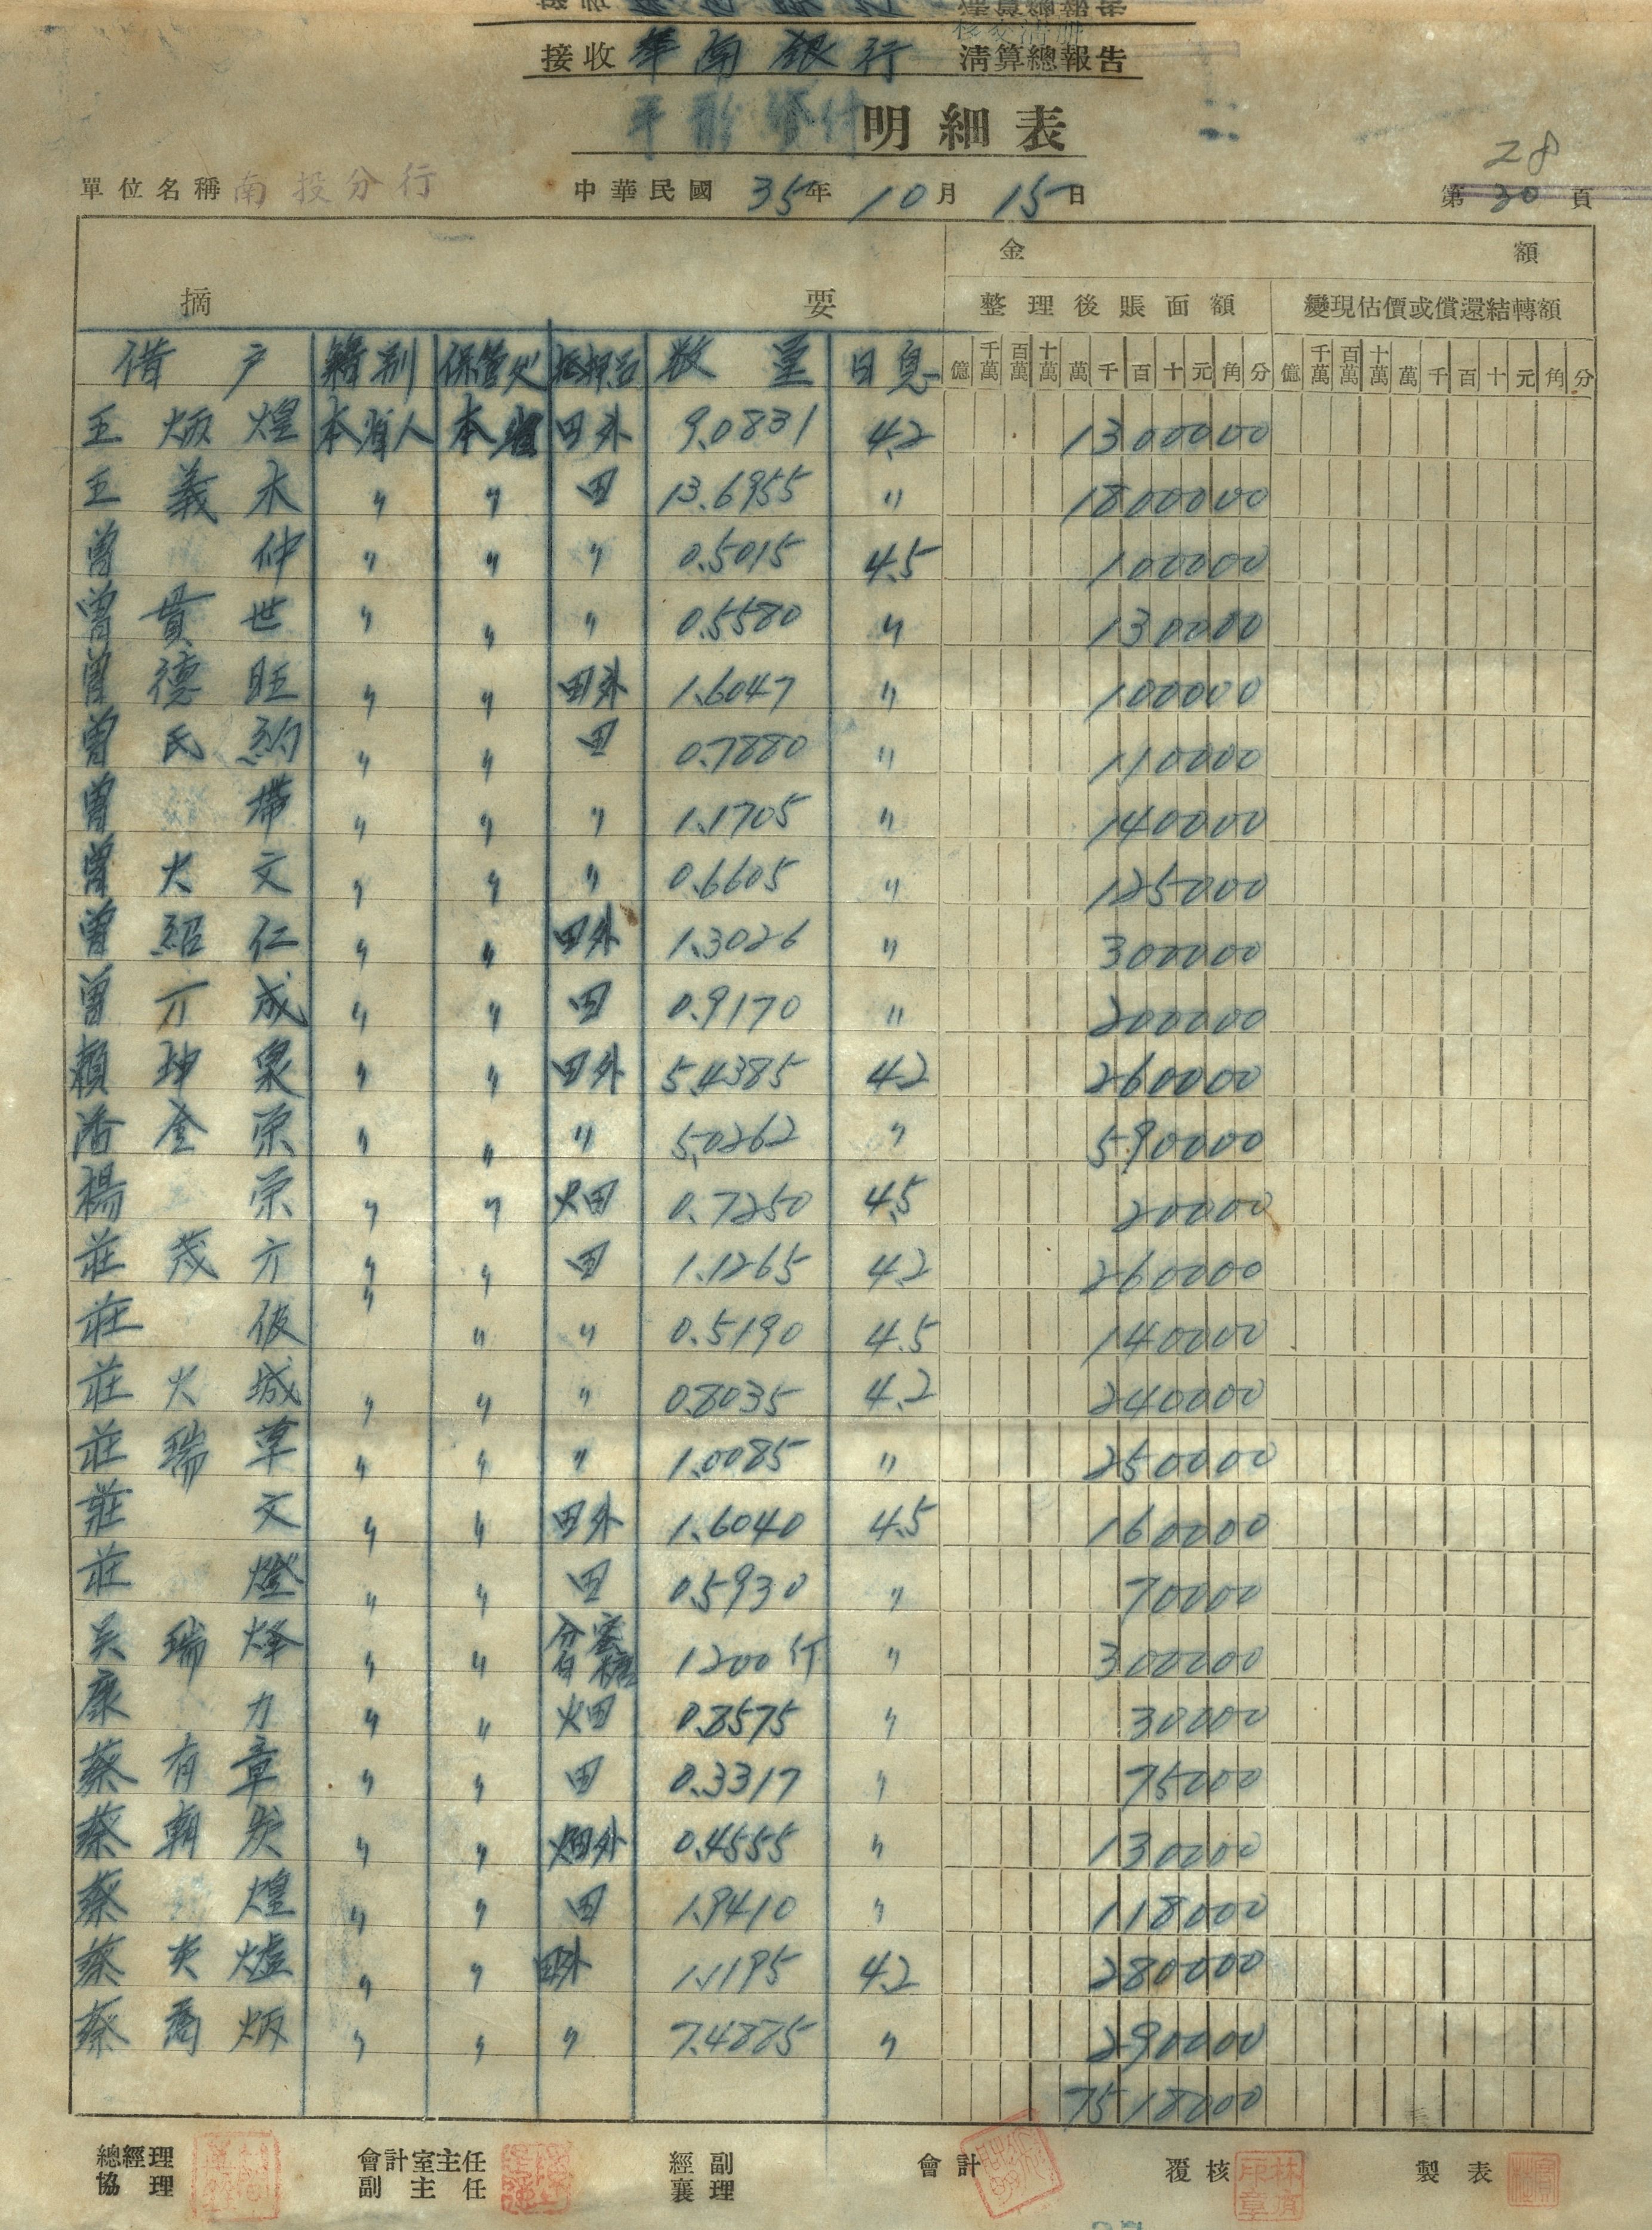 核交清册
接收 華南銀行 清算總報告
明細表
單位名稱 南投分行 中華民國 35年 10月 15日 28
第 30 頁
摘 要 金 額
整理後賬面額 變現估價或償還結轉額
借戶 籍別 保管処 数量 日息 億 千萬 百萬 十萬 萬 千 百 十 元 角 分 億 千萬 百萬 十萬 萬 千 百 十 元 角 分
王炳煌 本省人 本省 田外 9.0831 4.2 1300000
王義木 〃 〃 田 13.6955 〃 1800000
曾仲 〃 〃 〃 0.5015 4.5 100000
曾貫世 〃 〃 〃 0.5580 〃 130000
曾德旺 〃 〃 田外 1.6047 〃 100000
曾氏約 〃 〃 田 0.7880 〃 110000
曾帶 〃 〃 〃 1.1705 〃 140000
曾大文 〃 〃 〃 0.6605 〃 125000
曾紹仁 〃 〃 田外 1.3026 〃 300000
曾才成 〃 〃 田 0.9170 〃 200000
賴坤泉 〃 〃 田外 5.4385 4.2 260000
潘金荣 〃 〃 〃 5.0262 〃 590000
楊荣 〃 〃 畑 0.7250 4.5 20000
莊茂才 〃 〃 田 1.1265 4.2 260000
莊 〃 〃 〃 0.5190 4.5 140000
莊火城 〃 〃 〃 0.8035 4.2 240000
莊瑞草 〃 〃 〃 1.0085 〃 250000
莊文 〃 〃 田外 1.6040 4.5 160000
莊燈 〃 〃 田 0.5930 〃 70000
吴瑞烽 〃 〃 分蜜白糖 1200斤 〃 300000
康力 〃 〃 畑 0.8575 〃 30000
蔡有章 〃 〃 田 0.3317 〃 75000
蔡朝炭 〃 〃 畑外 0.4555 〃 130000
蔡煌 〃 〃 田 1.9410 〃 118000
蔡炎爐 〃 〃 田外 1.1195 4.2 280000
蔡喬炳 〃 〃 〃 7.4875 〃 290000
7518000
總經理 會計室主任 經副 會計 覆核 製表
協理 副主任 襄理